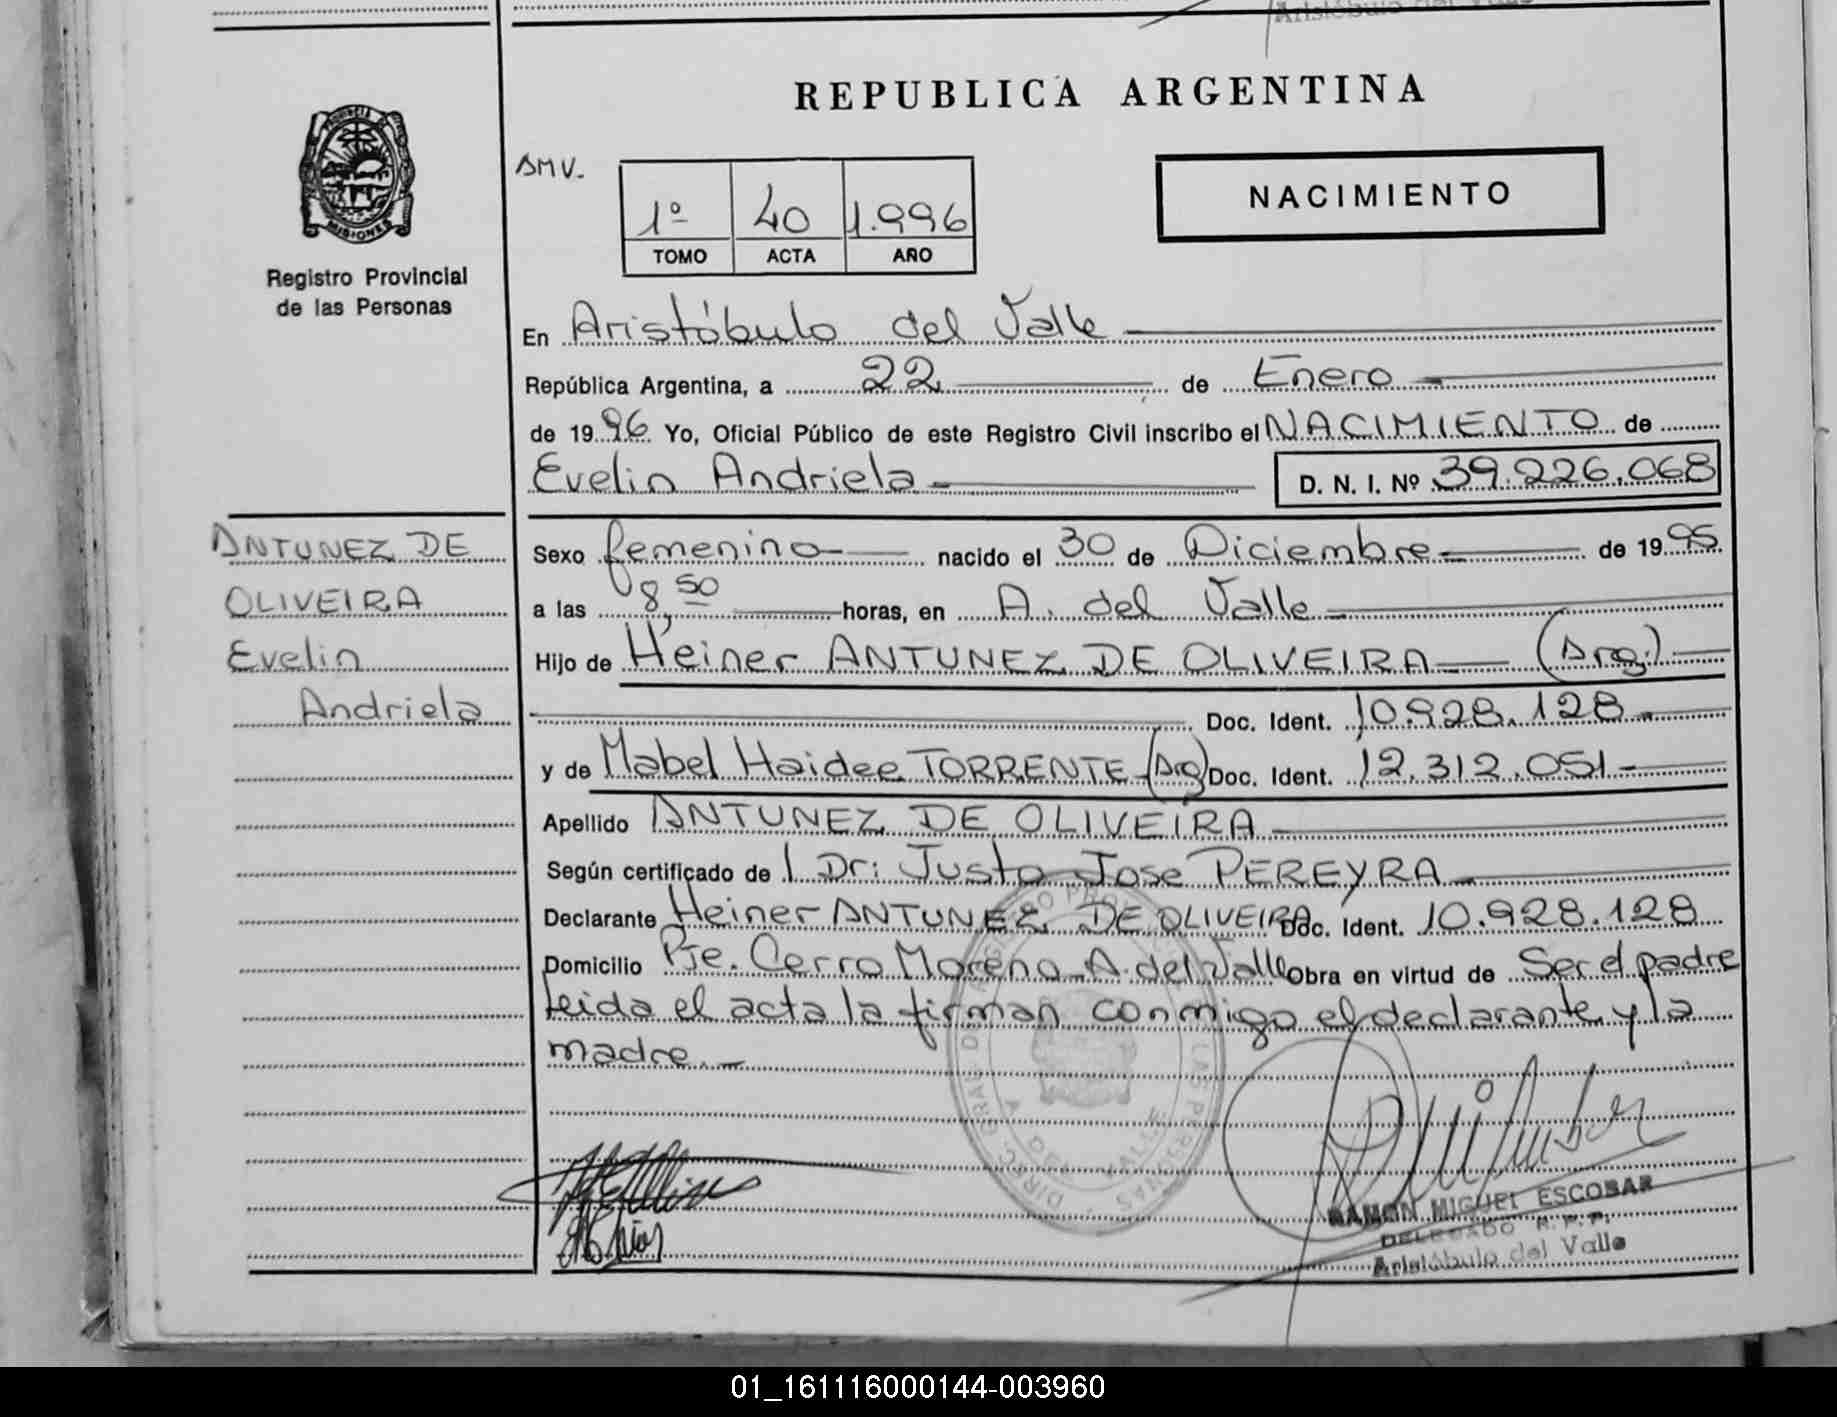 Aristóbulo del Valle
REPUBLICA ARGENTINA
PROVINCIA DE
MISIONES
Registro Provincial
de las Personas
AMV.
1º 40 1.996
TOMO ACTA AÑO
NACIMIENTO
En Aristóbulo del Valle
República Argentina, a 22 de Enero
de 1996 Yo, Oficial Público de este Registro Civil inscribo el NACIMIENTO de
Evelin Andriela D. N. I. Nº 39.226.068
ANTUNEZ DE
OLIVEIRA
Evelin
Andriela
Sexo femenino nacido el 30 de Diciembre de 1995
a las 8,50 horas, en A. del Valle
Hijo de Heiner ANTUNEZ DE OLIVEIRA (Arg.)
Doc. Ident. 10.928.128
y de Mabel Haidee TORRENTE (Arg) Doc. Ident. 12.312.051
Apellido ANTUNEZ DE OLIVEIRA
Según certificado de l Dr: Justo Jose PEREYRA
Declarante Heiner ANTUNEZ DE OLIVEIRA Doc. Ident. 10.928.128
Domicilio Pje. Cerro Moreno A. del Valle Obra en virtud de Ser el padre
leida el acta la firman conmigo el declarante y la
madre.
RAMON MIGUEL ESCOBAR
DELEGADO R. P. P.
Aristóbulo del Valle
01_161116000144-003960